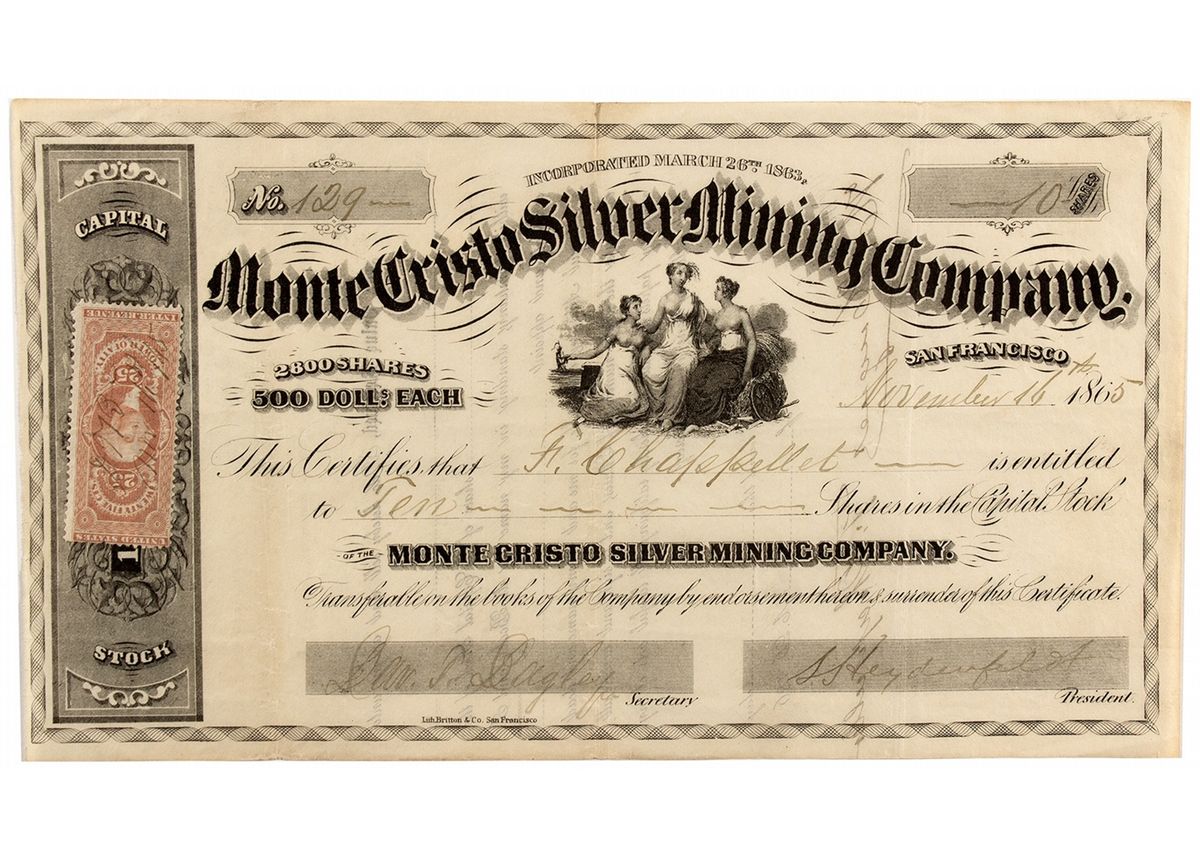 INCORPORATED MARCH 26TH 1863,
No. 129
10 SHARES
Monte Cristo Silver Mining Company.
CAPITAL
2800 SHARES
500 DOLLS. EACH
SAN FRANCISCO
November 16th 1865
This Certifies, that F. Chappellet is entitled
to Ten Shares in the Capital Stock
OF THE MONTE CRISTO SILVER MINING COMPANY.
Transferable on the books of the Company by endorsement hereon & surrender of this Certificate.
STOCK
S Heydenfeldt
Secretary
President.
Lith. Britton & Co. San Francisco
INTER. REVENUE
25
25
UNITED STATES